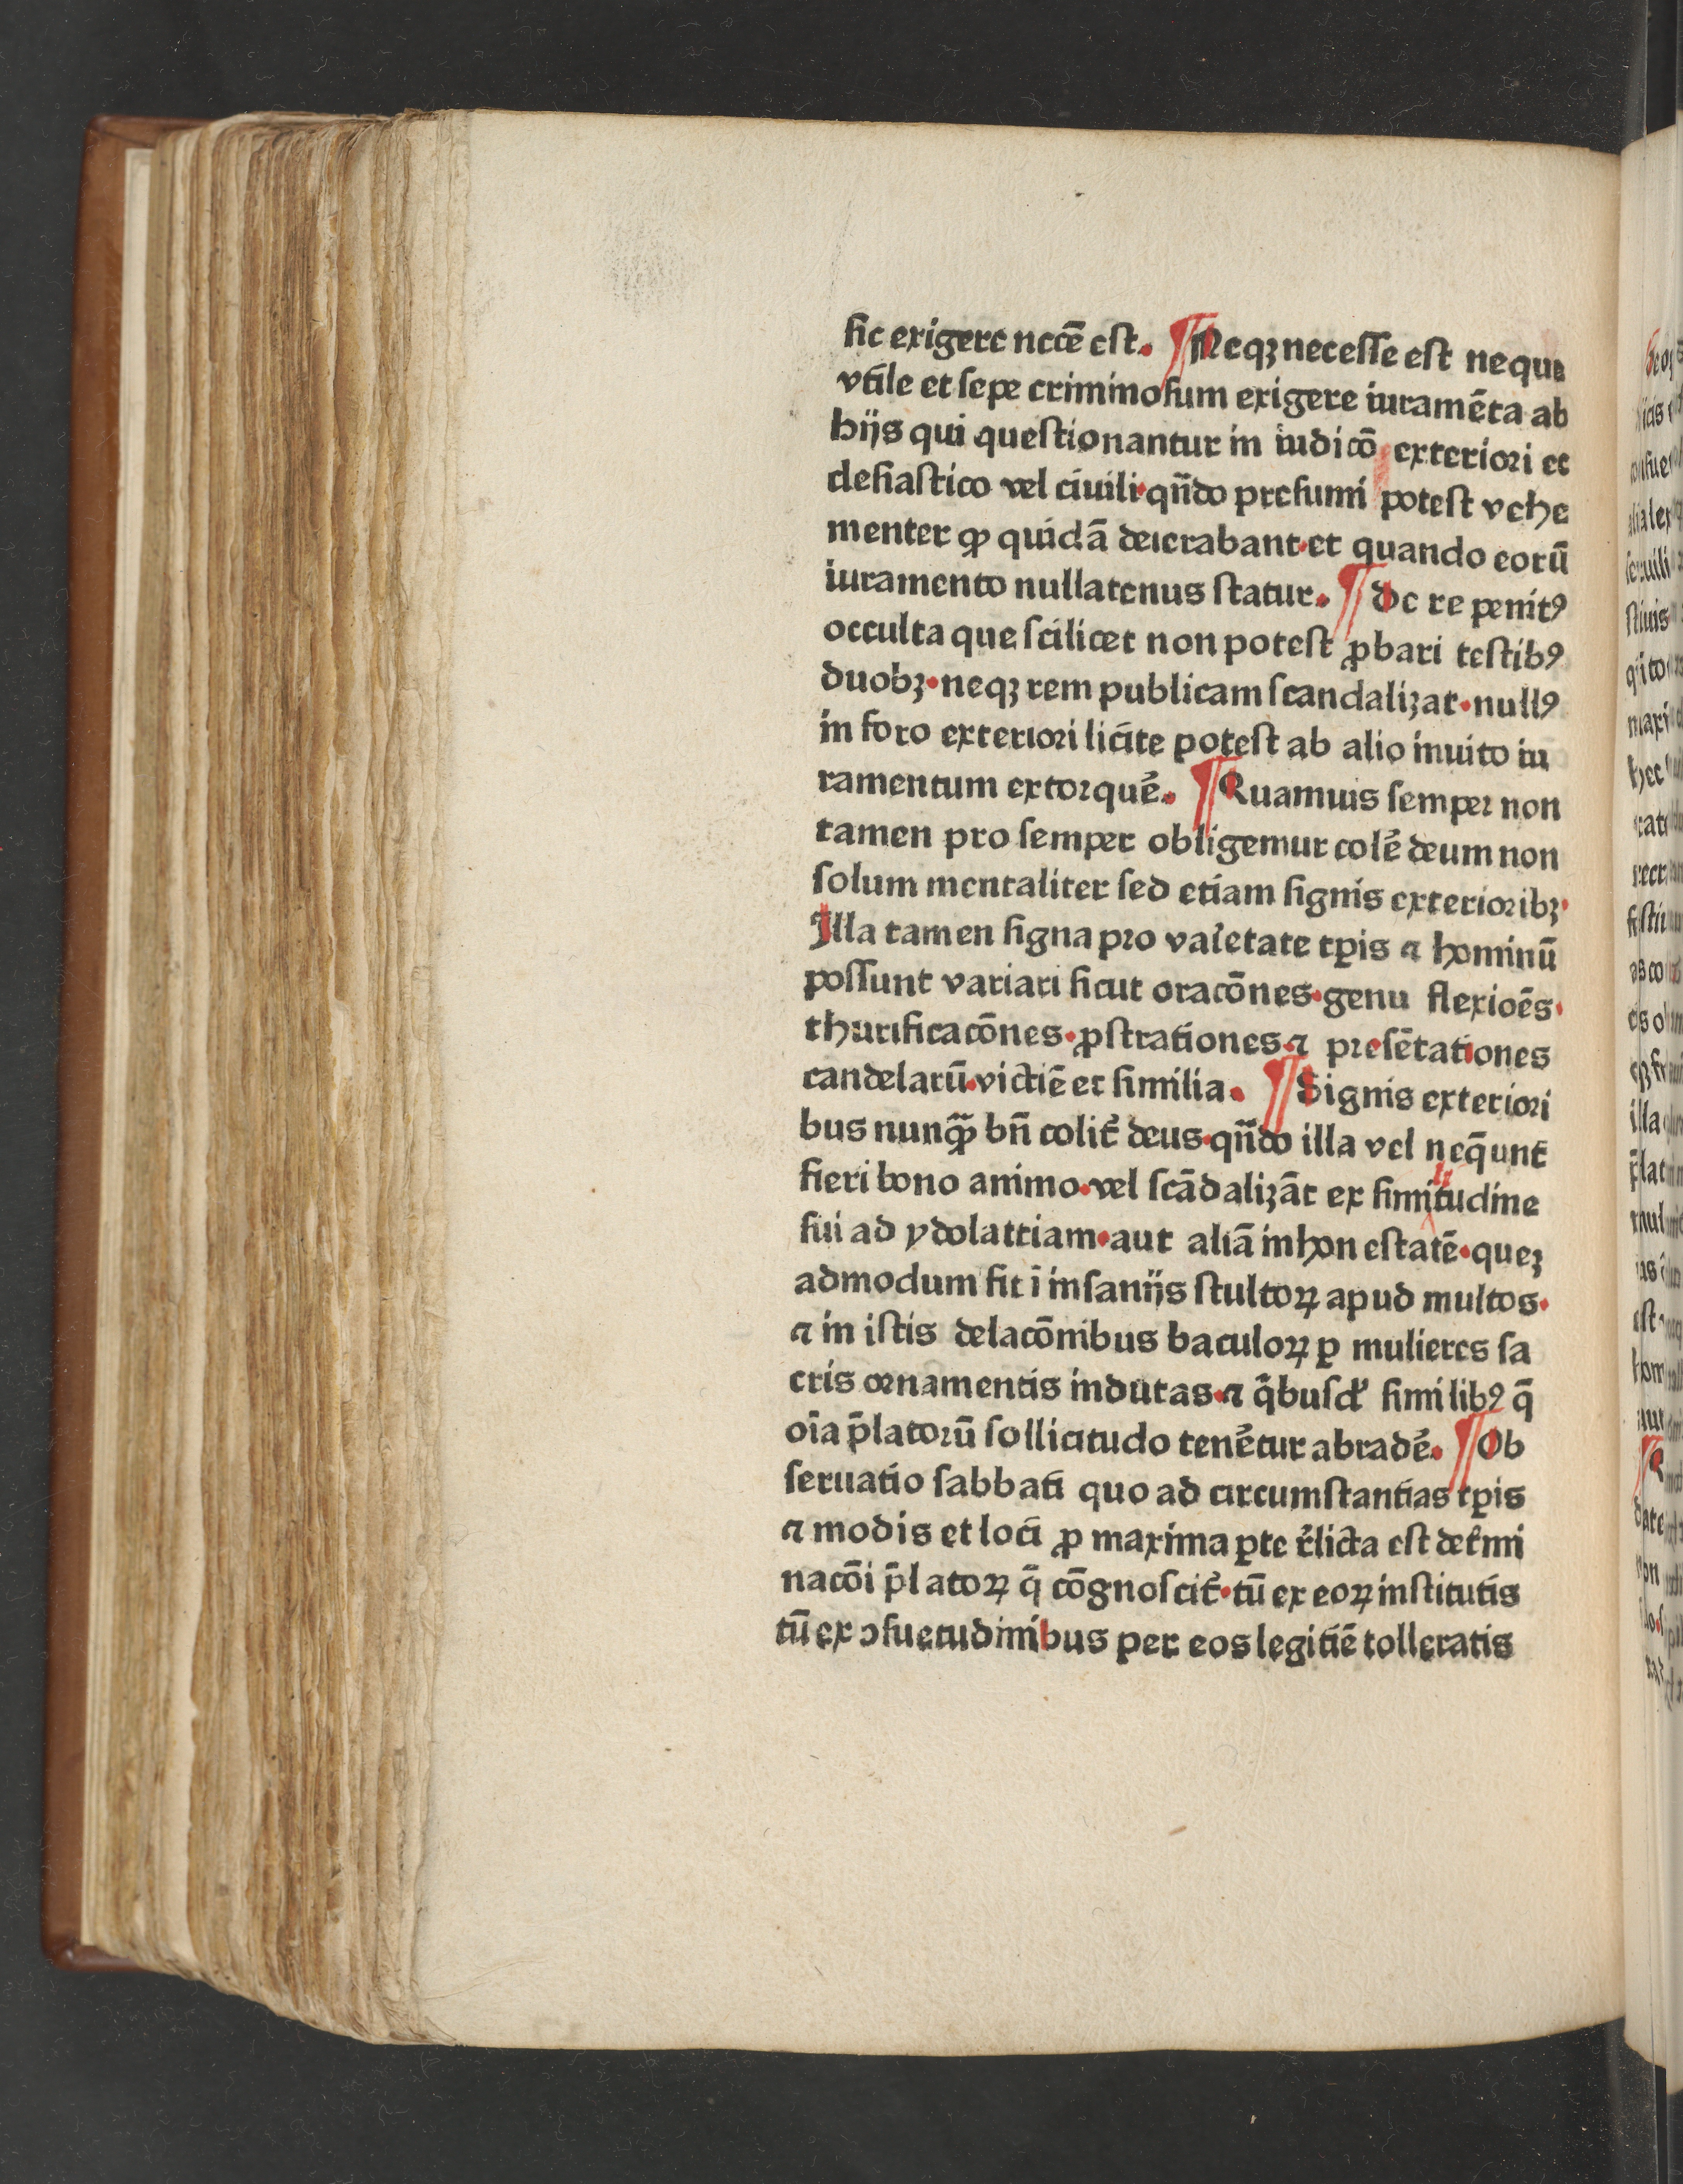 sic exigere necē est. ¶ Neqꝫ necesse est neque
vtile et sepe criminosum exigere iuramēta ab
hijs qui questionantur in iudicō exteriori ec
clesiastico vel ciuili·qñdo presumi potest vehe
menter ꝙ quidā deierabant·et quando eorū
iuramento nullatenus statur. ¶ De re penitꝰ
occulta que scilicet non potest ꝓbari testibꝰ
duobꝫ·neqꝫ rem publicam scandalizat·nullꝰ
in foro exteriori licite potest ab alio inuito iu
ramentum extorquē. ¶ Quamuis semper non
tamen pro semper obligemur colē deum non
solum mentaliter sed etiam signis exterioribꝫ·
Illa tamen signa pro vaīetate tꝑis ⁊ hominū
possunt variari sicut oracōnes·genu flexioēs·
thurificacōnes·ꝓstrationes·⁊ presētationes
candelarū·victiē et similia. ¶ Signis exteriori
bus nunꝙ̄ bn̄ colit̄ deus·qñdo illa vel neq̄unt
fieri bono animo·vel scādalizāt ex simitudine
sui ad ydolatriam·aut aliā inhonestatē·queꝫ
admodum fit ī insanijs stultoꝝ apud multos·
⁊ in istis delacōnibus baculoꝝ ꝑ mulieres sa
cris ornamentis indutas·⁊ q̄busd' similibꝰ q̄
oīa p̄latorū sollicitudo tenētur abradē. ¶ Ob
seruatio sabbati quo ad circumstantias tꝑis
⁊ modis et loci ꝓ maxima ꝑte r̄licta est det̄mi
nacōi p̄latoꝝ q̄ cōgnoscit̄·tū ex eoꝝ institutis
tū ex ↄsuetudinibus per eos legitiē tolleratis